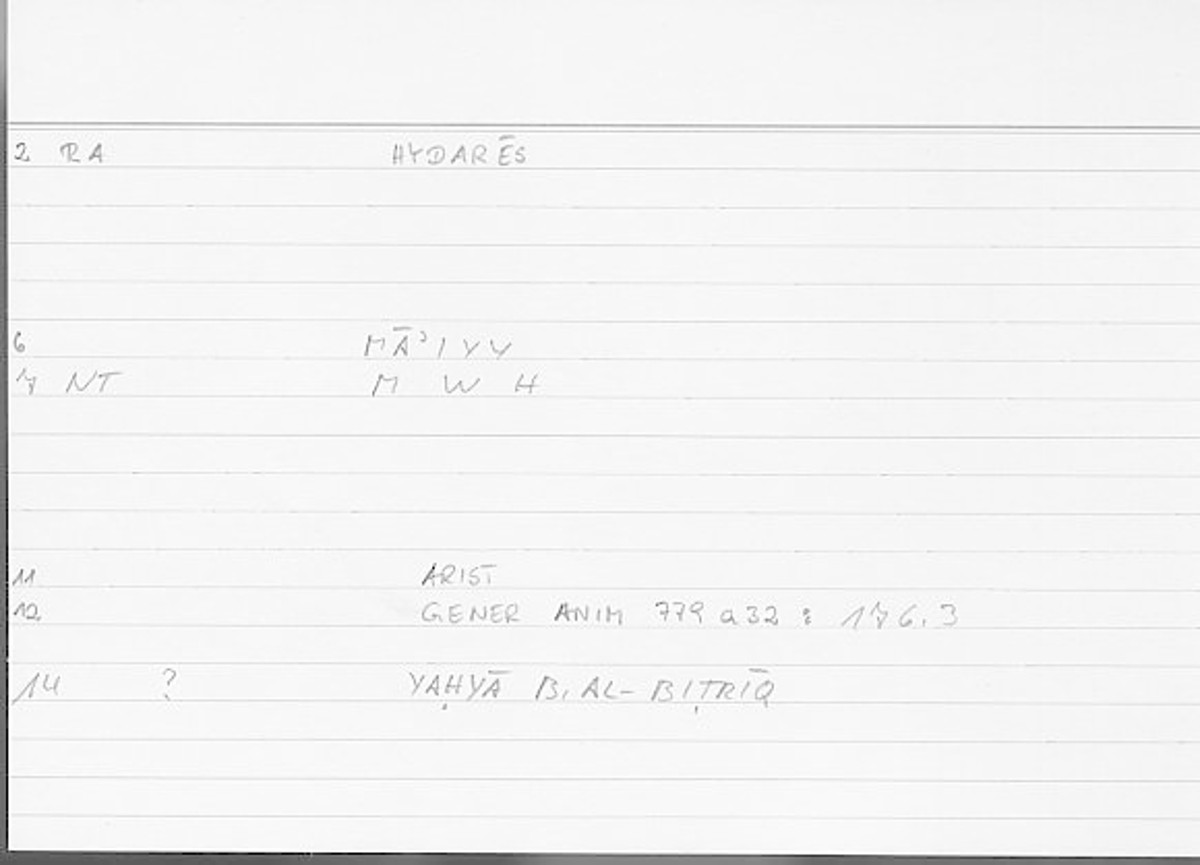 2 RA HYDARĒS
6 MĀʾIYY
7 NT M W H
11 ARIST
12 GENER ANIM 779 a32 : 176.3
14 ? YAḤYĀ B. AL-BIṬRĪQ